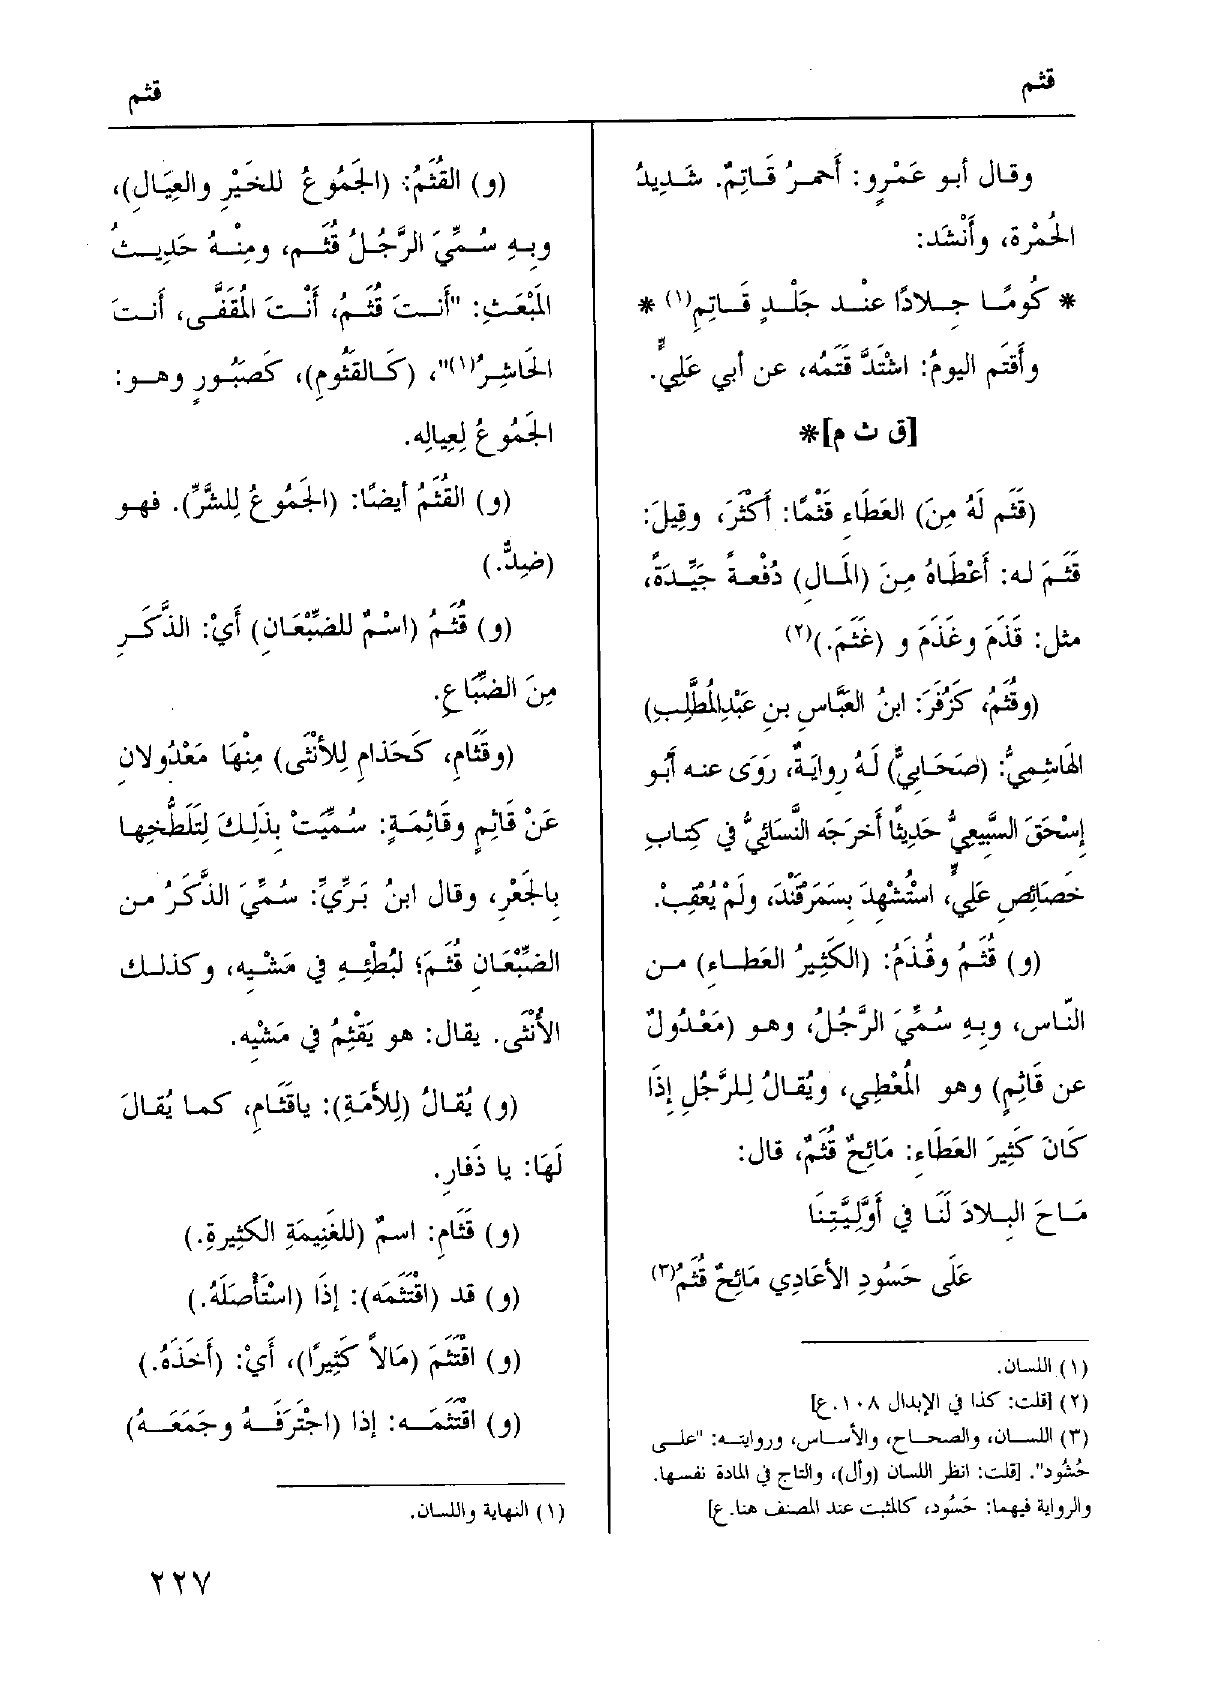 قثم
قثم
وقال أبو عَمْرٍو: أَحمرُ قَاتِمٌ. شَدِيدُ
الحُمْرة، وأَنْشَد:
* كُومًا جِلادًا عنْد جَلْدٍ قَاتِمِ(١) *
وأَقتَم اليومُ: اشْتَدَّ قَتَمُه، عن أبي عَلِيٍّ.
[ق ث م]*
(قَثَم لَهُ مِنَ) العَطَاءِ قَثْمًا: أَكْثَرَ، وقِيلَ:
قَثَمَ له: أَعْطَاهُ مِنَ (المَالِ) دُفْعةً جَيِّدَةً،
مثل: قَذَمَ وغَذَمَ و (غَثَمَ.)(٢)
(وقُثَمُ، كَزُفَرَ: ابنُ العَبَّاسِ بنِ عَبْدِالمُطَّلِبِ)
الهَاشِمِيُّ: (صَحَابِيٌّ) لَهُ روايَةٌ، رَوَى عنه أَبُو
إِسْحَقَ السَّبِيعِيُّ حَدِيثًا أَخرَجَه النَّسَائِيُّ في كِتابِ
خَصَائِصِ عَلِيٍّ، اسْتُشْهِدَ بِسَمَرْقَنْدَ، ولَمْ يُعْقِبْ.
(و) قُثَمُ وقُذَمُ: (الكَثِيرُ العَطاءِ) من
النّاس، وبِهِ سُمِّيَ الرَّجُلُ، وهو (مَعْدُولٌ
عن قَاثِمٍ) وهو المُعْطِي، ويُقالُ لِلرَّجُلِ إِذَا
كَانَ كَثِيرَ العَطَاءِ: مَائِحٌ قُثَمٌ، قال:
مَاحَ البِلادَ لَنَا في أَوَّلِيَّتِنَا
عَلَى حَسُودِ الأعَادِي مَائِحٌ قُثَمُ(٣)
(١) اللسان.
(٢) [قلت: كذا في الإبدال ١٠٨.ع]
(٣) اللسان، والصحاح، والأساس، وروايته: "على
حُشُود". [قلت: انظر اللسان (وأل)، والتاج في المادة نفسها.
والرواية فيهما: حَسُود، كالمثبت عند المصنف هنا.ع]
(و) القُثَمُ: (الجَمُوعُ للخَيْرِ والعِيَالِ)،
وبِهِ سُمِّيَ الرَّجُلُ قُثَم، ومِنْهُ حَدِيثُ
المَبْعَثِ: "أَنتَ قُثَمُ، أَنْتَ المُقَفَّى، أَنتَ
الحَاشِرُ(١)"، (كَالقَثُومِ)، كَصَبُورٍ وهو:
الجَمُوعُ لِعِيالِه.
(و) القُثَمُ أيضًا: (الجَمُوعُ لِلشَّرِّ). فهو
(ضِدٌّ.)
(و) قُثَمُ (اسْمٌ للضِّبْعَانِ) أَيْ: الذَّكَرِ
مِنَ الضِّبَاعِ.
(وقَثَامِ، كَحَذَامِ لِلأُنْثَى) مِنْهَا مَعْدُولانِ
عَنْ قَاثِمٍ وقَاثِمَةٍ: سُمِّيَتْ بِذَلِكَ لِتَلَطُّخِها
بِالجَعْرِ، وقال ابنُ بَرِّيِّ: سُمِّيَ الذَّكَرُ من
الضِّبْعَانِ قُثَمَ؛ لبُطْئِهِ في مَشْيِه، وكذلك
الأُنْثَى. يقال: هو يَقْثِمُ في مَشْيِه.
(و) يُقالُ (لِلأَمَةِ): ياقَثَامِ، كما يُقالَ
لَهَا: يا ذَفَارِ.
(و) قَثَامِ: اسمٌ (للغَنِيمَةِ الكثِيرةِ.)
(و) قد (اقْتَثَمَه): إِذَا (اسْتَأْصَلَهُ.)
(و) اقْتَثَمَ (مَالاً كَثِيرًا)، أَيْ: (أَخَذَهُ.)
(و) اقْتَثَمَه: إذا (اجْتَرَفَهُ وجَمَعَهُ)
(١) النهاية واللسان.
٢٢٧